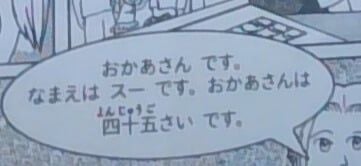 おかあさん です。
なまえは スー です。おかあさんは
よんじゅうご
四十五さい です。